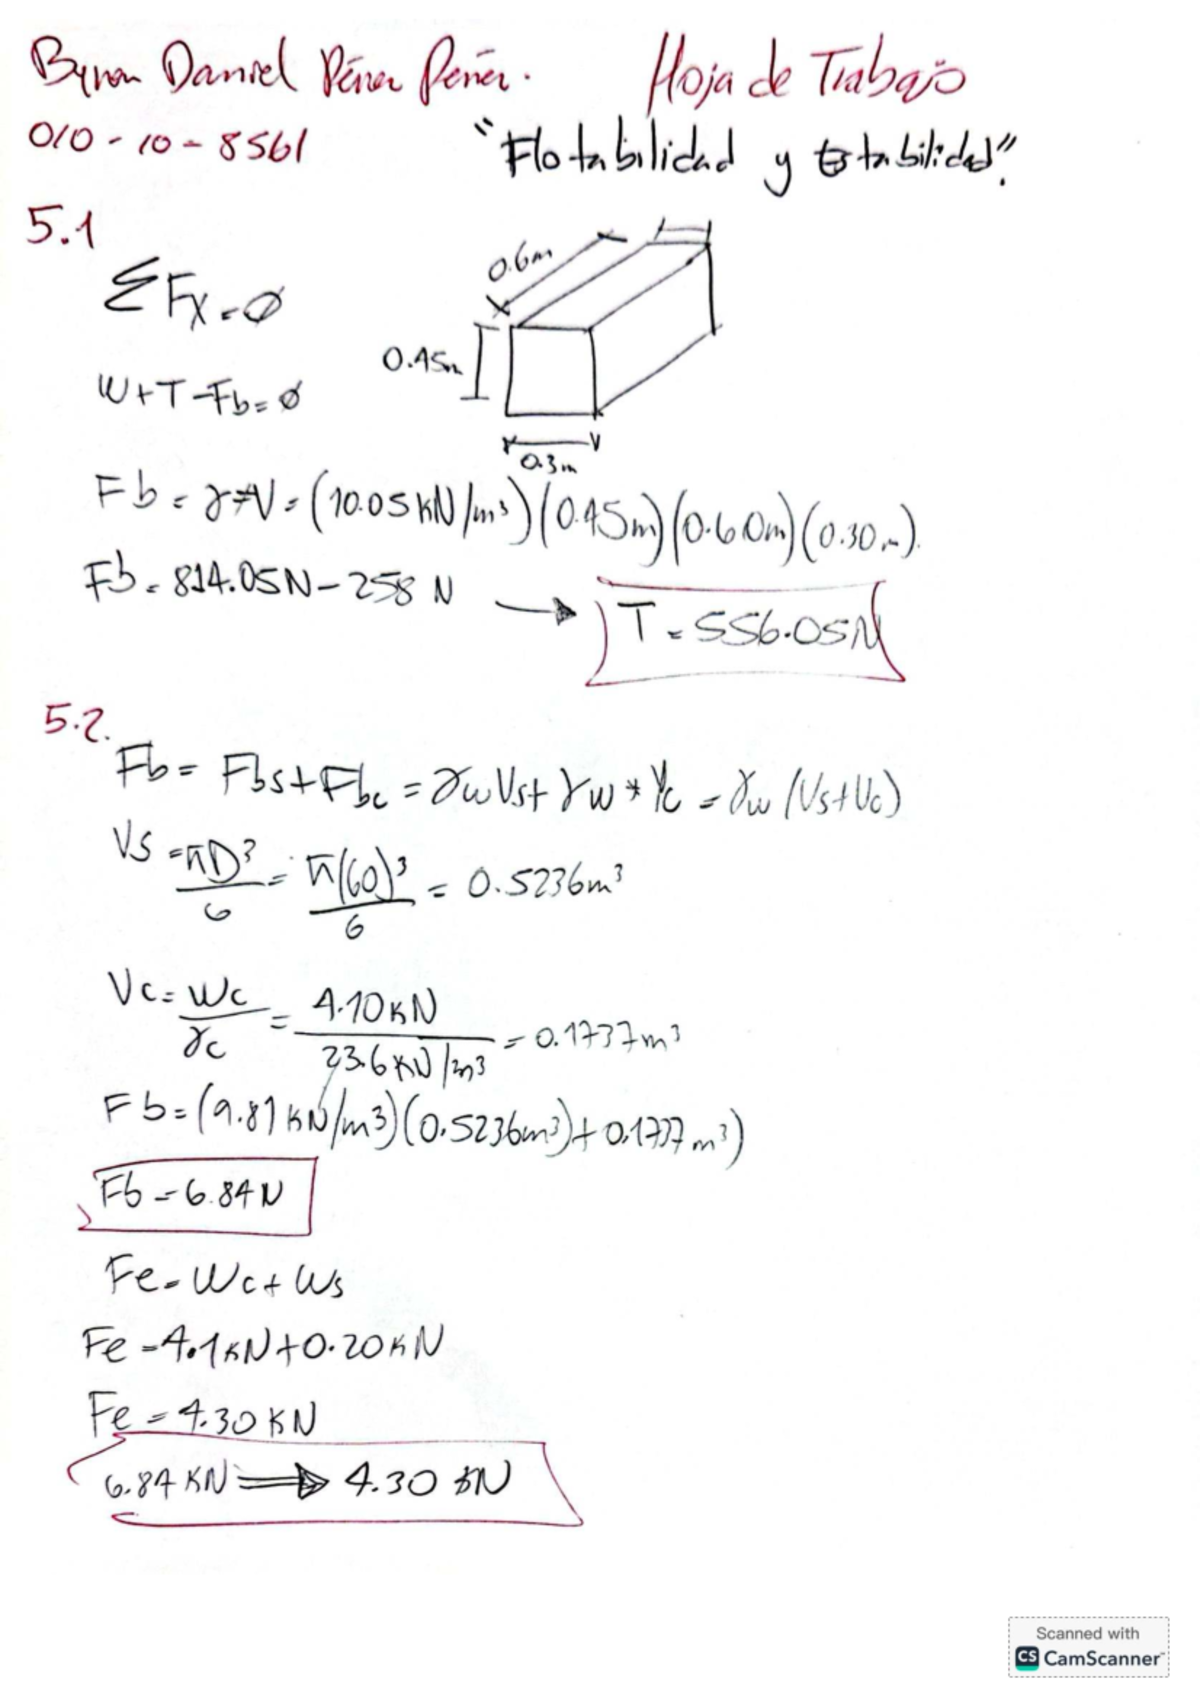 Byron Daniel Pérez Pérez. Hoja de Trabajo
010-10-8561 "Flotabilidad y Estabilidad".
5.1
ΣFx=∅
0.6m
0.45m
W+T-Fb=∅
0.3m
Fb=γ*V=(10.05KN/m³)(0.45m)(0.60m)(0.30m).
Fb=814.05N-258N → T=556.05N
5.2.
Fb=Fbs+Fbc=γwVs+γw*Vc=γw(Vs+Vc)
Vs=πD³/6=π(60)³/6=0.5236m³
Vc=Wc/γc=4.10KN/23.6KN/m³=0.1737m³
Fb=(9.81KN/m³)(0.5236m³)+0.1737m³)
Fb=6.84N
Fe=Wc+Ws
Fe=4.1KN+0.20KN
Fe=4.30KN
6.84KN⟹4.30KN
Scanned with
CS CamScanner